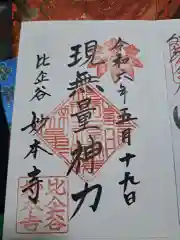 令和六年五月十九日
現無量神力
比企谷
妙本寺
比企谷
妙本寺